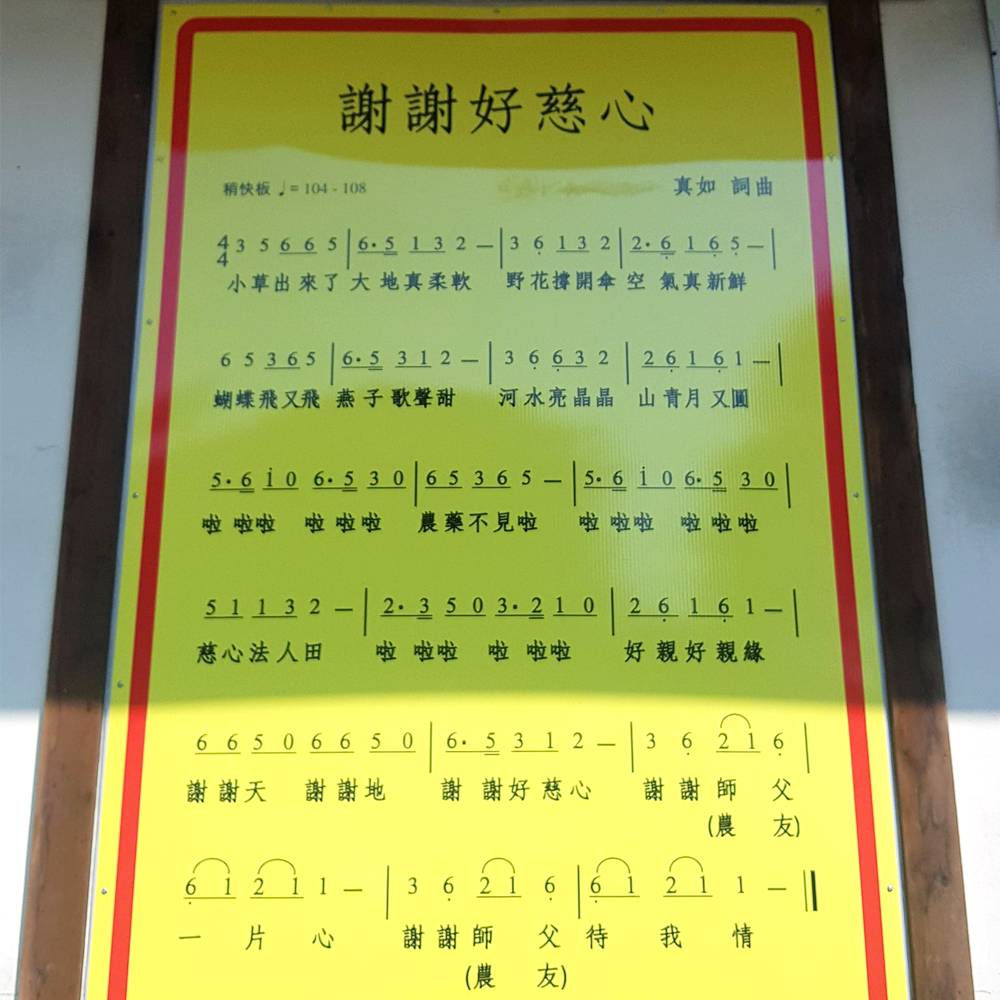 謝謝好慈心
稍快板 ♩= 104 - 108 真如 詞曲
4/4 3 5 6 6 5 | 6· 5 1 3 2 — | 3 6̣ 1 3 2 | 2· 6̣ 1 6̣ 5̣ — |
小草出來了 大地真柔軟 野花撐開傘 空氣真新鮮
6 5 3 6 5 | 6· 5 3 1 2 — | 3 6̣ 6̣ 3 2 | 2 6̣ 1 6̣ 1 — |
蝴蝶飛又飛 燕子歌聲甜 河水亮晶晶 山青月又圓
5· 6 i 0 6· 5 3 0 | 6 5 3 6 5 — | 5· 6 i 0 6· 5 3 0 |
啦 啦啦 啦 啦啦 農藥不見啦 啦 啦啦 啦 啦啦
5 1 1 3 2 — | 2· 3 5 0 3· 2 1 0 | 2 6̣ 1 6̣ 1 — |
慈心法人田 啦 啦啦 啦 啦啦 好親好親緣
6 6 5 0 6 6 5 0 | 6· 5 3 1 2 — | 3 6̣ 2 1 6̣ |
謝謝天 謝謝地 謝謝好慈心 謝謝師 父
(農 友)
6̣ 1 2 1 1 — | 3 6̣ 2 1 6̣ | 6̣ 1 2 1 1 — ‖
一 片 心 謝謝師 父 待 我 情
(農 友)